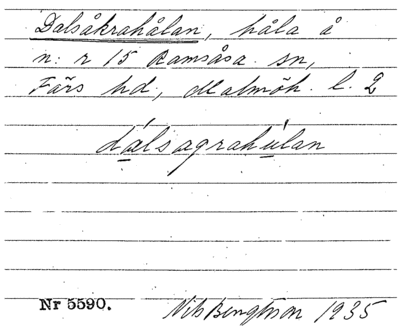 Dalsåkrahålan, håla å
n: r 15 Ramsåsa sn,
Färs hd, Malmöh. l. 2
dálsagrahúlan
Nr 5590.
Nils Bengtson 1935